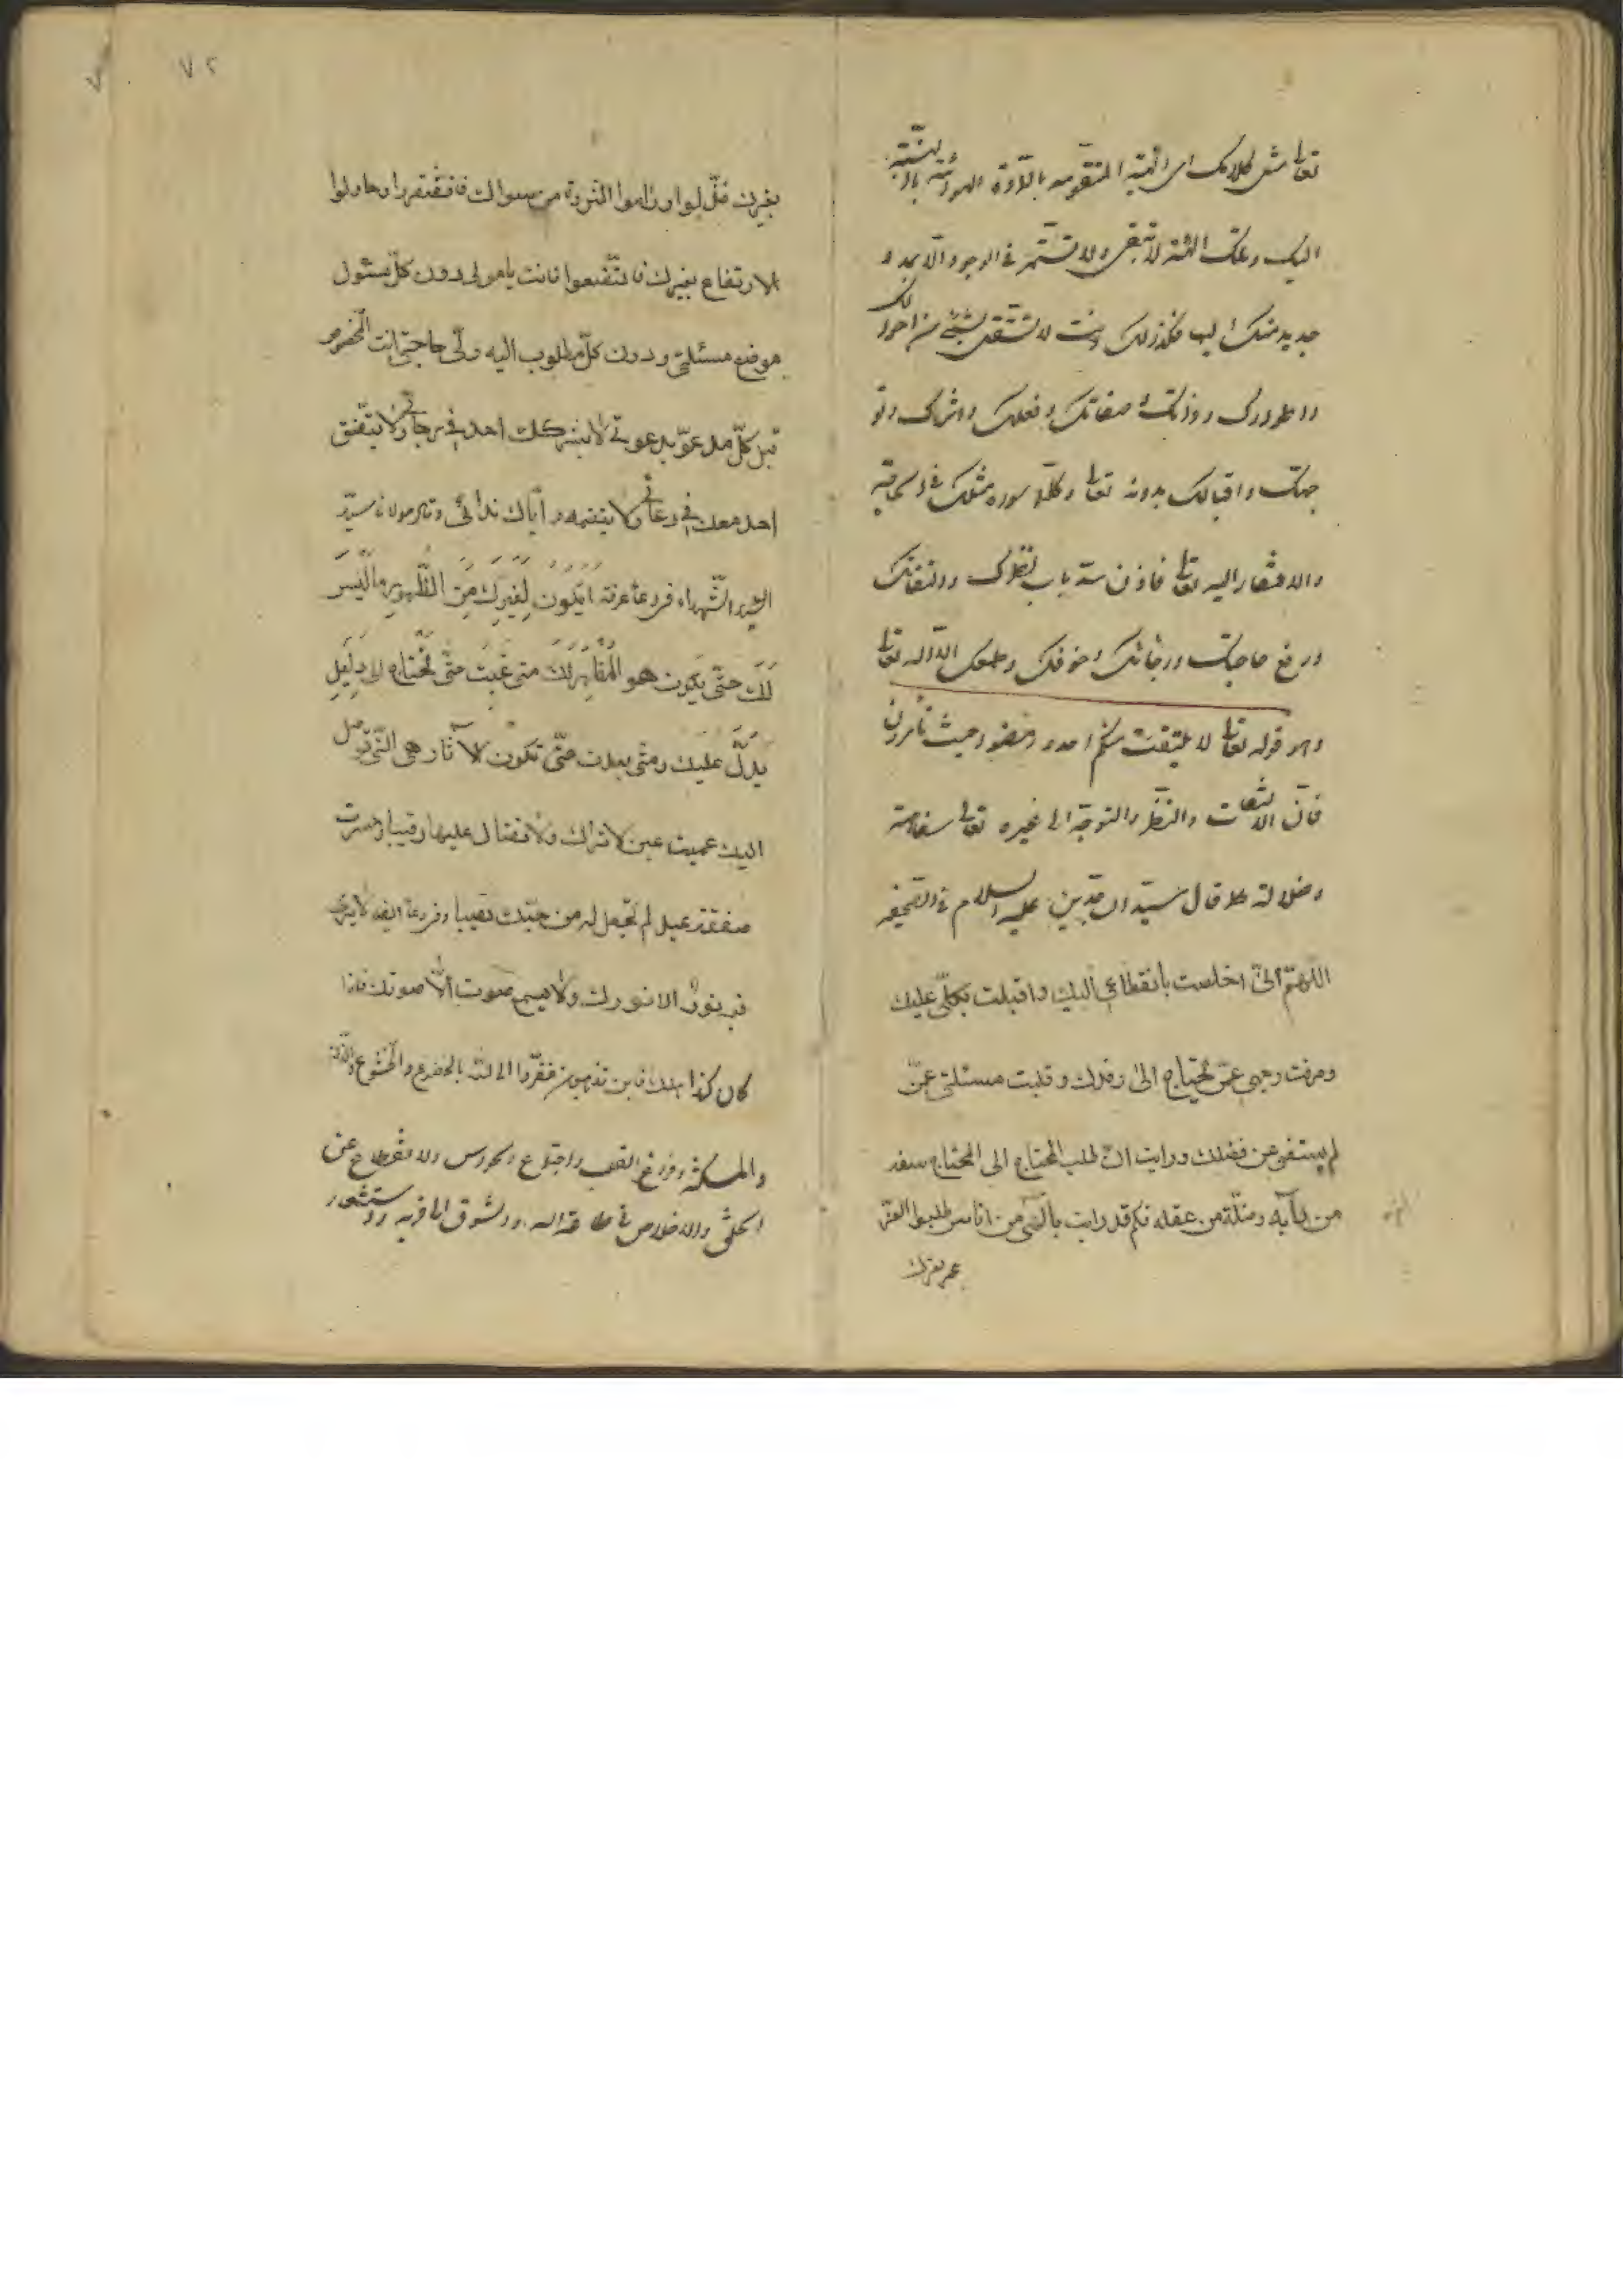 تعالى مثل كلامك اى الهيئة المتقومه بالمادة الهوائية بالنسبة
اليك وتلك الهيئة لا تبقى ولا تستمر فى الوجود الا بمدد
جديد منك اليها فكذلك انت لا تستقل بشيئ من احوالك
واطوارك وذاتك وصفاتك وفعلك واثرك وتو
جهك واقبالك بدونه تعالى وكلما سواه مثلك فى الحاجة
والافتقار اليه تعالى فاذن سد باب نظرك والتفاتك
ورفع حاجتك ورجائك وخوفك وطمعك الا اليه تعالى
وهو قوله تعالى لا يلتفت منكم احد وامضوا حيث تؤمرون
فان الالتفات والنظر والتوجه الى غيره تعالى سفاهة
وضلالة كما قال سيد الساجدين عليه السلام فى الصحيفه
اللهم انى اخلصت بانقطاعى اليك واقبلت بكلى عليك
وصرفت وجهى عمن يحتاج الى رفدك وقلبت مسئلتى عمن
لم يستغن عن فضلك ورايت ان طلب المحتاج الى المحتاج سفه
من رأيه وضلة من عقله فكم قد رايت يا الهى من اناس طلبوا العز
بغيرك فذلوا وراموا الثروة من سواك فافتقروا وحاولوا
الارتفاع بغيرك فاتضعوا فانت يا مولى دون كل مسئول
موضع مسئلتى ودون كل مطلوب اليه ولى حاجتى انت المخصوص
قبل كل مدعو بدعوتى لا يشركك احد فى رجائى ولا يتفق
احد معك فى دعائى ولا ينظمه واياك ندائى وقال مولانا سيد
الشهداء فى دعاء عرفة ايكون لغيرك من الظهور ما ليس
لك حتى يكون هو المظهر لك متى غبت حتى تحتاج الى دليل
يدل عليك ومتى بعدت حتى تكون الآثار هى التى توصل
اليك عميت عين لا تراك ولا تزال عليها رقيبا وخسرت
صفقة عبد لم تجعل له من حبك نصيبا وفى دعاء ايضا لا يرى
فيه نور الا نورك ولا يسمع صوت الا صوتك فاذا
كان كذلك فاين تذهبون ففروا الى الله بالخضوع والخشوع والذلة
والمسكنة وفراغ القلب واجتماع الحواس والانقطاع عن
الخلق والاخلاص فى طاعة الله والشوق الى قربه واستشعار
عمر بغيرك
٧٢